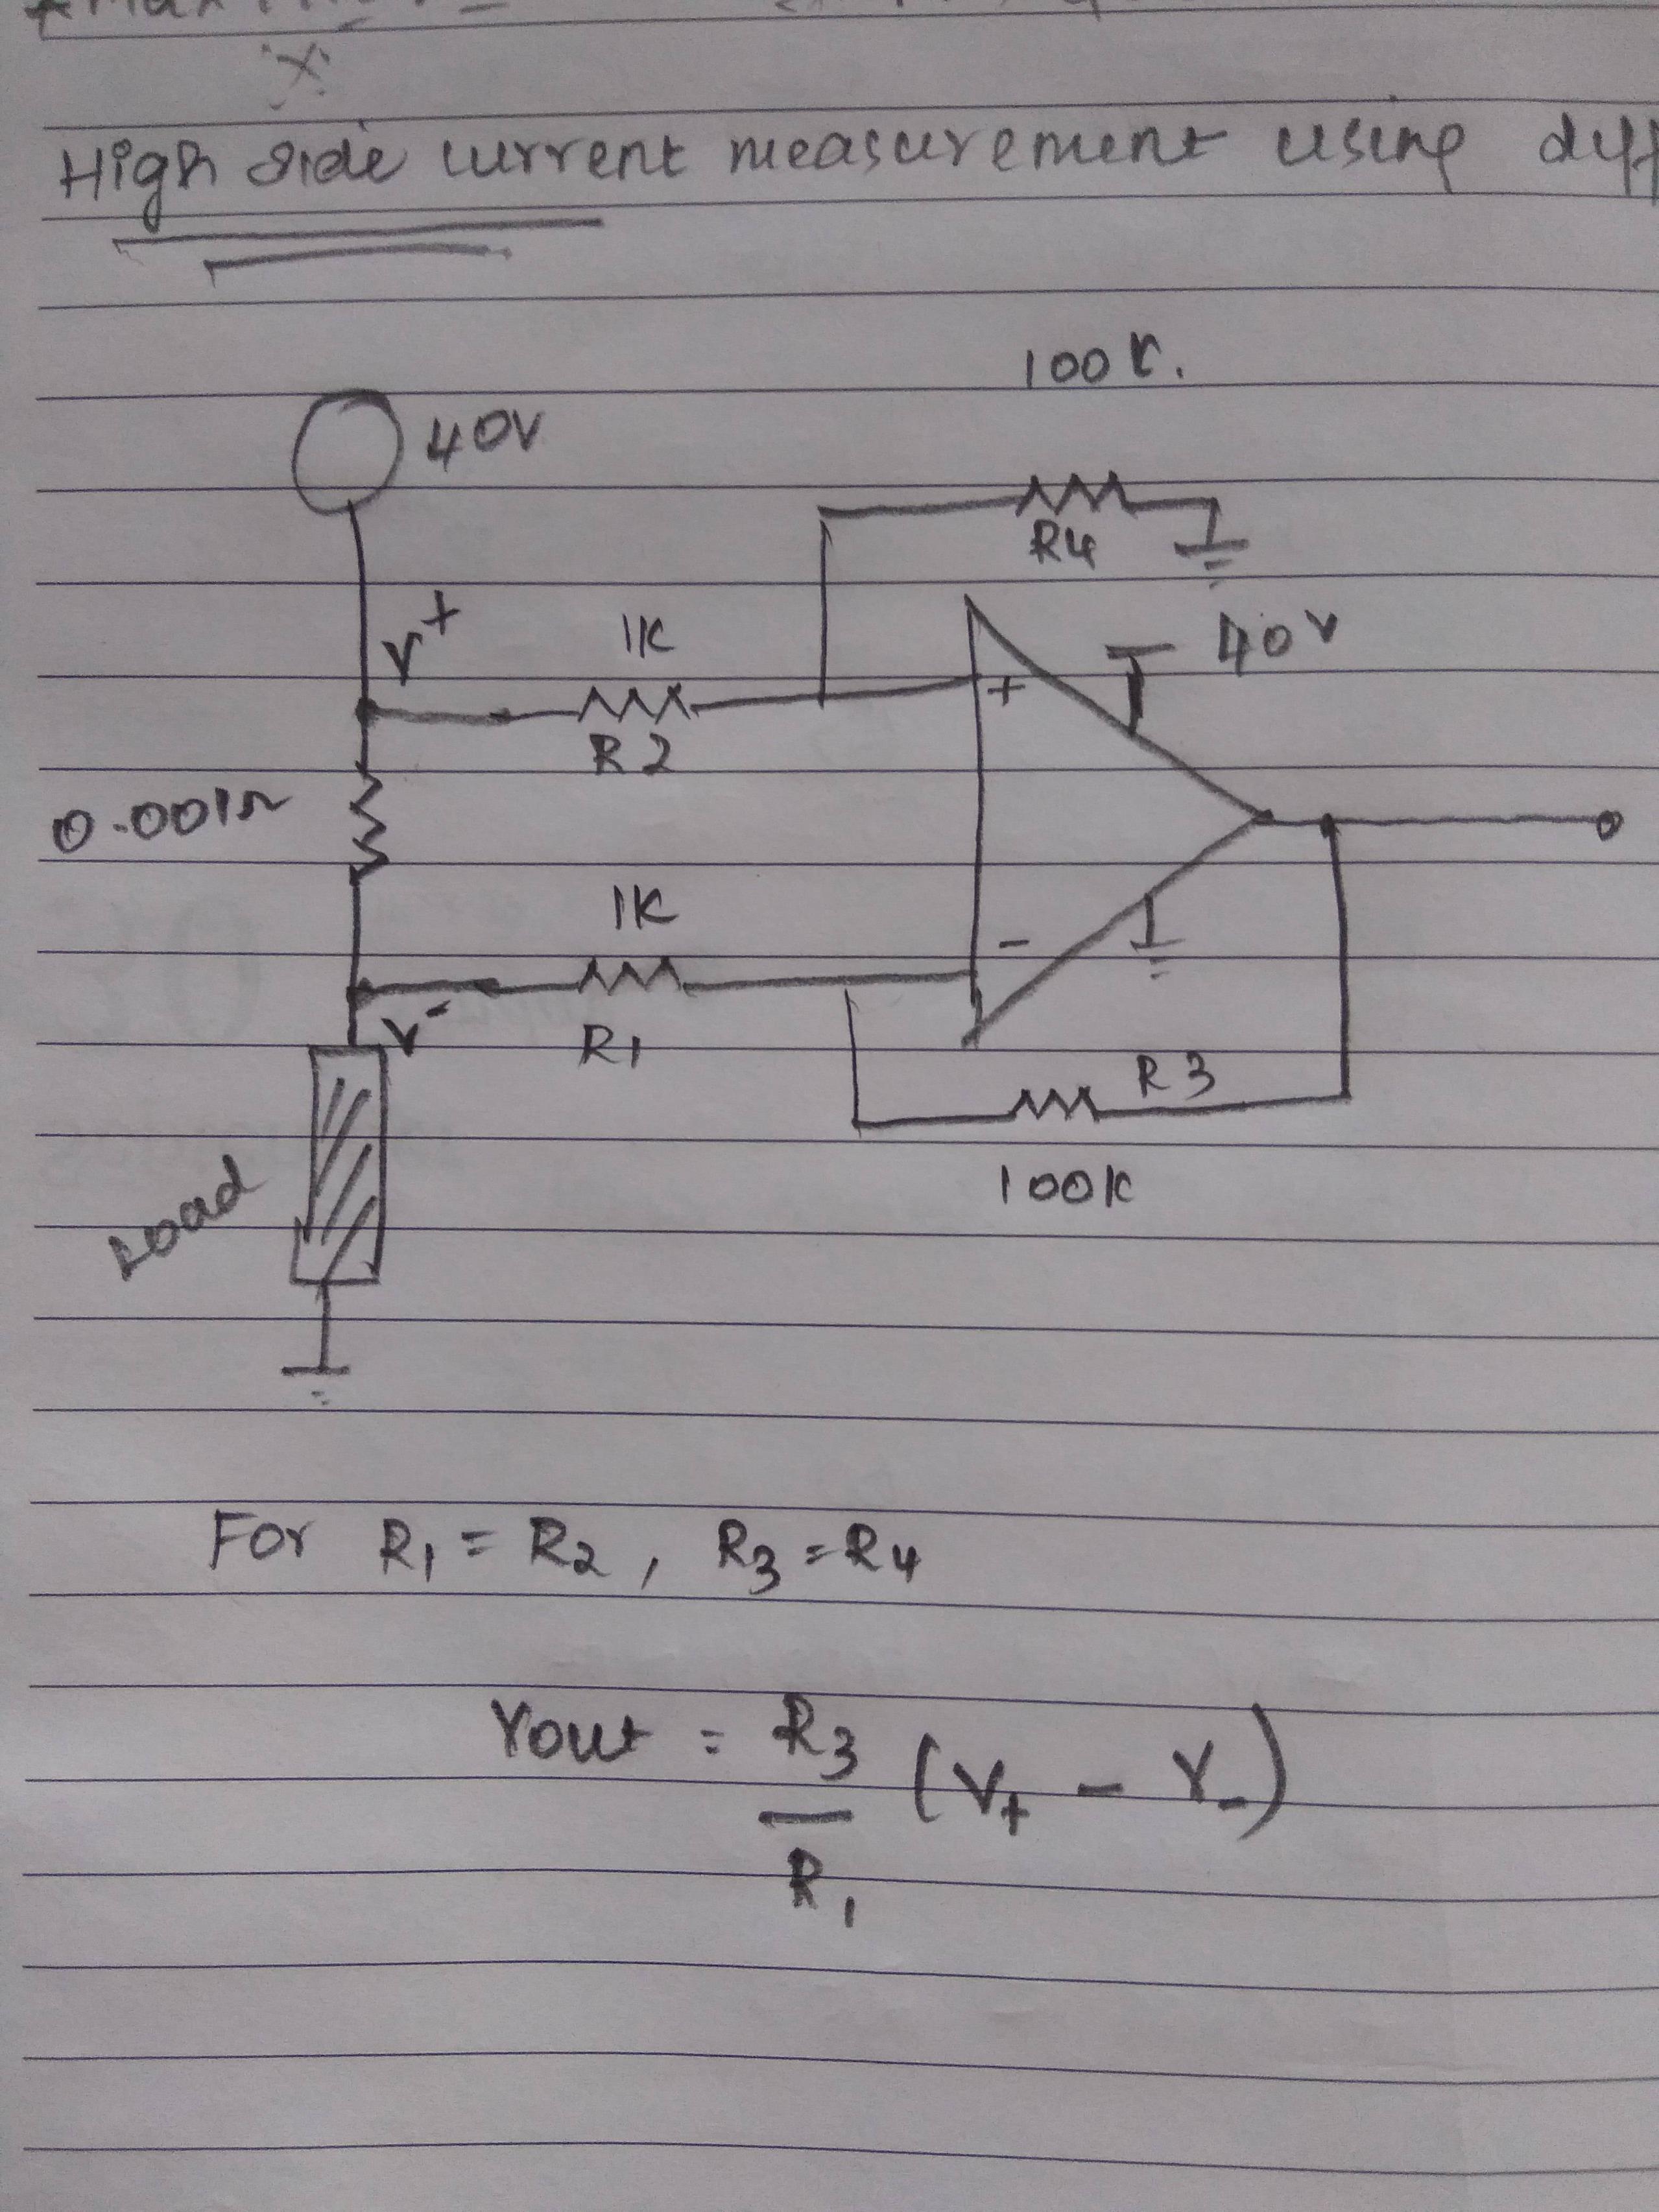 High side current measurement using diff
100K.
40V
R4
V+
1K
40V
+
R2
0.001Ω
1K
-
V-
R1
R3
Load
100K
For R1 = R2, R3 = R4
Vout = R3 (V+ - V-)
R1